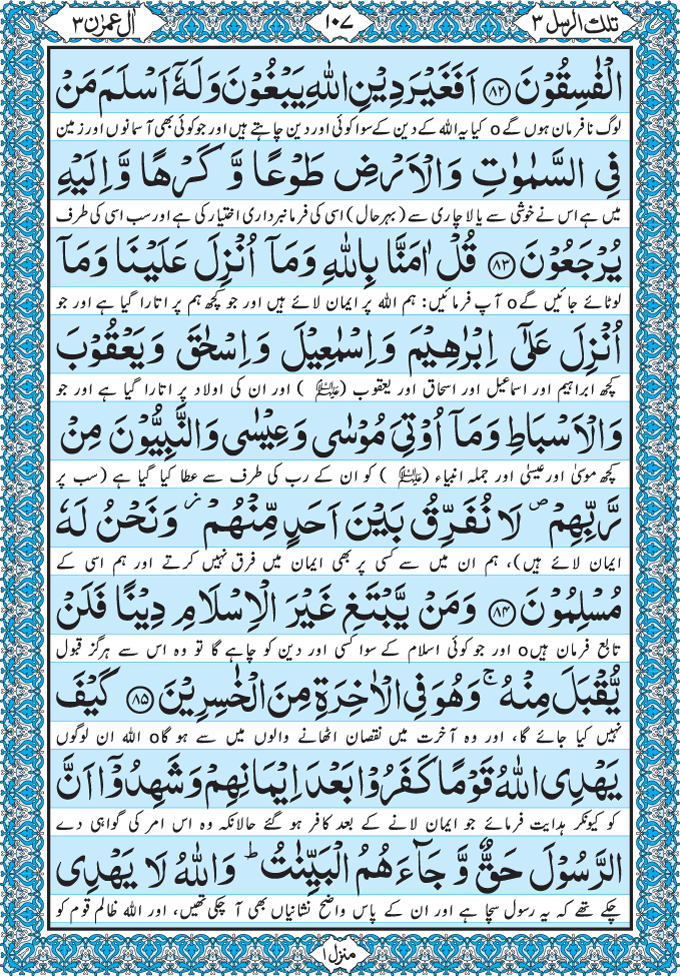 تلك الرسل ٣ ١٠٧ اٰل عمرٰن ٣
الْفٰسِقُوْنَ ﴿۸۲﴾ اَفَغَيْرَ دِيْنِ اللّٰهِ يَبْغُوْنَ وَلَهٗۤ اَسْلَمَ مَنْ
لوگ نافرمان ہوں گے o کیا یہ اللہ کے دین کے سوا کوئی اور دین چاہتے ہیں اور جو کوئی بھی آسمانوں اور زمین
فِي السَّمٰوٰتِ وَالْاَرْضِ طَوْعًا وَّكَرْهًا وَّاِلَيْهِ
میں ہے اس نے خوشی سے یا لاچاری سے (بہرحال) اسی کی فرمانبرداری اختیار کی ہے اور سب اسی کی طرف
يُرْجَعُوْنَ ﴿۸۳﴾ قُلْ اٰمَنَّا بِاللّٰهِ وَمَاۤ اُنْزِلَ عَلَيْنَا وَمَاۤ
لوٹائے جائیں گے o آپ فرمائیں: ہم اللہ پر ایمان لائے ہیں اور جو کچھ ہم پر اتارا گیا ہے اور جو
اُنْزِلَ عَلٰۤى اِبْرٰهِيْمَ وَاِسْمٰعِيْلَ وَاِسْحٰقَ وَيَعْقُوْبَ
کچھ ابراہیم اور اسماعیل اور اسحاق اور یعقوب (علیہم السلام) اور ان کی اولاد پر اتارا گیا ہے اور جو
وَالْاَسْبَاطِ وَمَاۤ اُوْتِيَ مُوْسٰى وَعِيْسٰى وَالنَّبِيُّوْنَ مِنْ
کچھ موسیٰ اور عیسیٰ اور جملہ انبیاء (علیہم السلام) کو ان کے رب کی طرف سے عطا کیا گیا ہے (سب پر
رَّبِّهِمْ ۪ لَا نُفَرِّقُ بَيْنَ اَحَدٍ مِّنْهُمْ ؗ وَنَحْنُ لَهٗ
ایمان لائے ہیں)، ہم ان میں سے کسی پر بھی ایمان میں فرق نہیں کرتے اور ہم اسی کے
مُسْلِمُوْنَ ﴿۸۴﴾ وَمَنْ يَّبْتَغِ غَيْرَ الْاِسْلَامِ دِيْنًا فَلَنْ
تابع فرمان ہیں o اور جو کوئی اسلام کے سوا کسی اور دین کو چاہے گا تو وہ اس سے ہرگز قبول
يُّقْبَلَ مِنْهُ ۚ وَهُوَ فِي الْاٰخِرَةِ مِنَ الْخٰسِرِيْنَ ﴿۸۵﴾ كَيْفَ
نہیں کیا جائے گا، اور وہ آخرت میں نقصان اٹھانے والوں میں سے ہو گا o اللہ ان لوگوں
يَهْدِي اللّٰهُ قَوْمًا كَفَرُوْا بَعْدَ اِيْمَانِهِمْ وَشَهِدُوْۤا اَنَّ
کو کیونکر ہدایت فرمائے جو ایمان لانے کے بعد کافر ہو گئے حالانکہ وہ اس امر کی گواہی دے
الرَّسُوْلَ حَقٌّ وَّجَآءَهُمُ الْبَيِّنٰتُ ؕ وَاللّٰهُ لَا يَهْدِي
چکے تھے کہ یہ رسول سچا ہے اور ان کے پاس واضح نشانیاں بھی آ چکی تھیں، اور اللہ ظالم قوم کو
منزل ۱